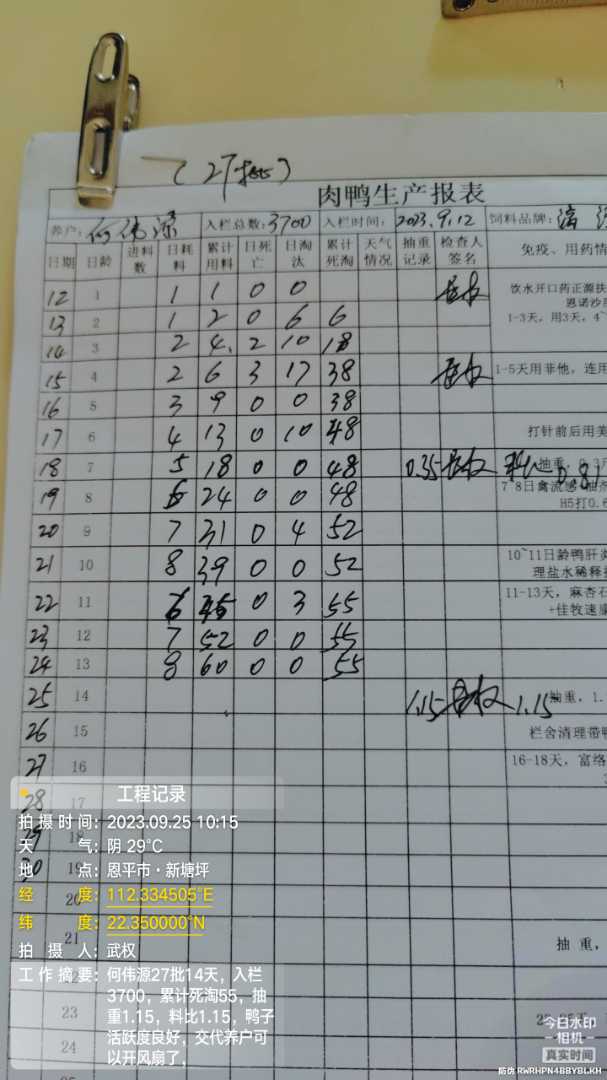 (27批)
肉鸭生产报表
养户: 何伟源 入栏总数: 3700 入栏时间: 2023.9.12 饲料品牌:
日期 日龄 进料数 日耗料 累计用料 日死亡 日淘汰 累计死淘 天气情况 抽重记录 检查人签名 免疫、用药情
12 1 1 1 0 0 饮水开口药正源扶
恩诺沙
13 2 1 2 0 6 6 1-3天，用3天，4~
14 3 2 4 2 10 18
15 4 2 6 3 17 38 1-5天用菲他，连用
16 5 3 9 0 0 38
17 6 4 13 0 10 48 打针前后用美
18 7 5 18 0 0 48 0.35 抽重，0.3 0.81
19 8 6 24 0 0 48 7~8日禽流感
H5打0.6
20 9 7 31 0 4 52
21 10 8 39 0 0 52 10~11日龄鸭肝炎
理盐水稀释
22 11 6 45 0 3 55 11-13天，麻杏石
+佳牧速康
23 12 7 52 0 0 55
24 13 8 60 0 0 55
25 14 1.15 抽重，1. 1.15
26 15 栏舍清理带鸭
27 16 16-18天，富络
28 17
29 18
30 19
20
21 抽重，
22
23
24
工程记录
拍摄时间: 2023.09.25 10:15
天气: 阴 29℃
地点: 恩平市·新塘坪
经度: 112.334505°E
纬度: 22.350000°N
拍摄人: 武权
工作摘要: 何伟源27批14天，入栏
3700，累计死淘55，抽
重1.15，料比1.15，鸭子
活跃度良好，交代养户可
以开风扇了，
今日水印
-相机-
真实时间
防伪 RWRHPN4BBYBLKH